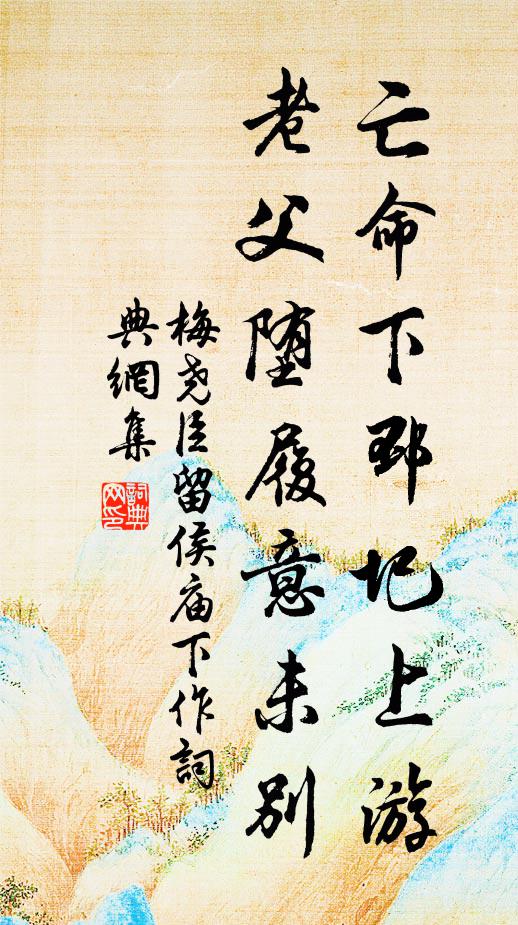 亡命下邳圯上游
老父堕履意未别
梅尧臣留侯庙下作詞
典網集
詞典
网印